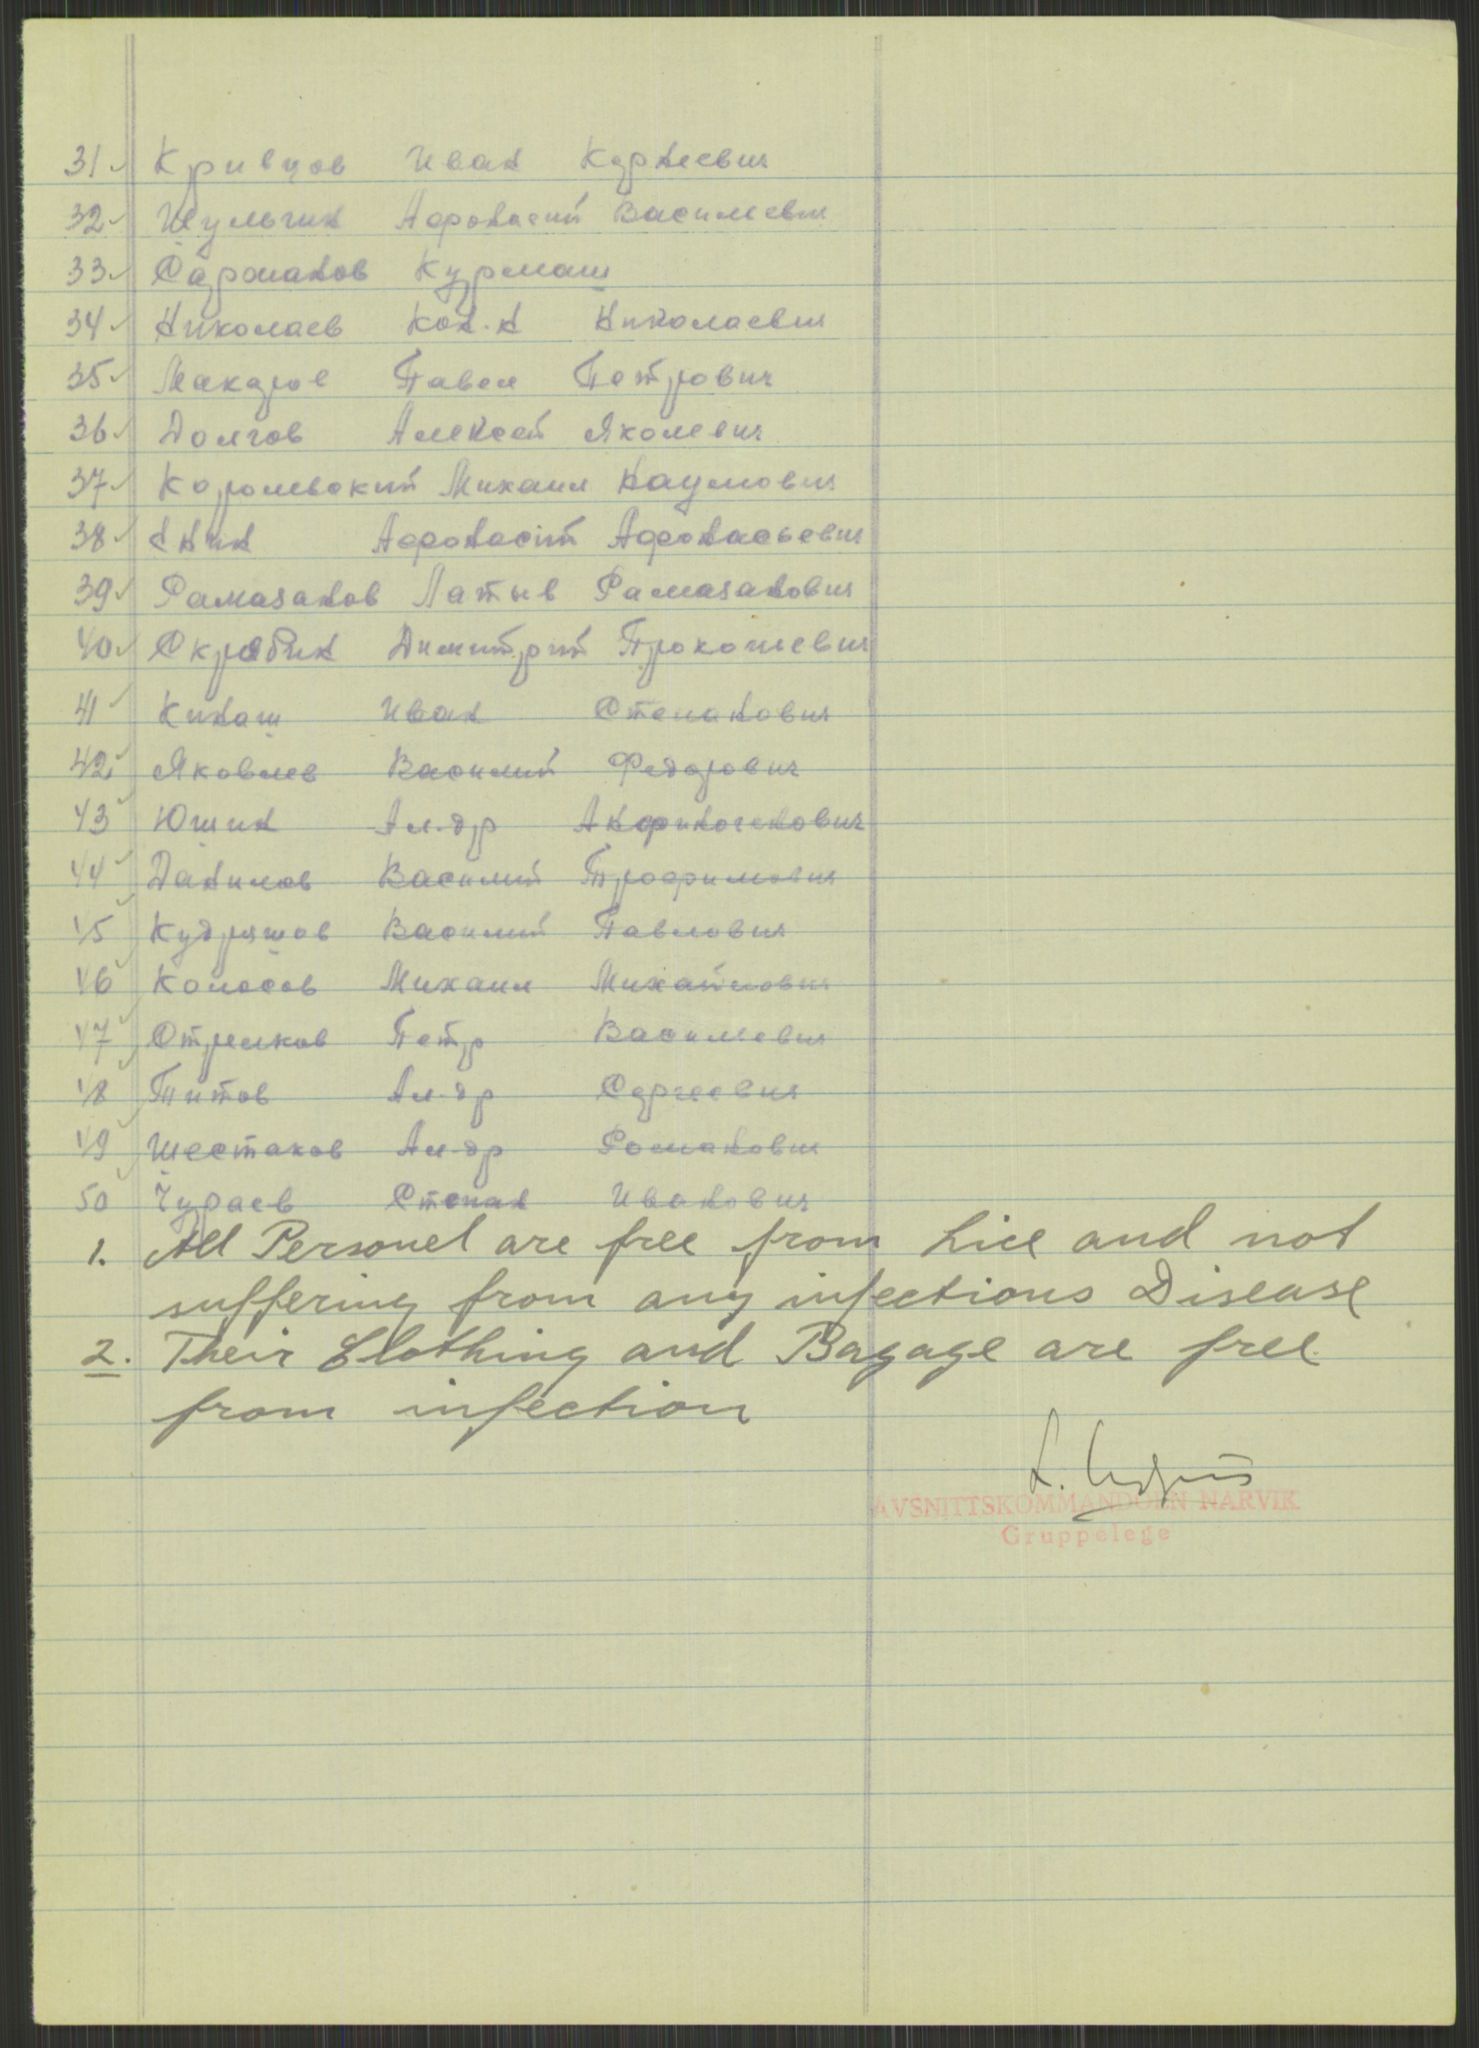 31 Кривцов Иван Корнеевич
32 Шульгин Афонасий Василевич
33 Сарманов Курмаш
34 Николаев Кон.н Николаевич
35 Макаров Павел Петрович
36 Долгов Алексей Яколевич
37 Королевский Михаил Наумович
38 Афонасий Афонасьевич
39 Рамазанов Латыв Рамазанович
40 Скрябин Димитрий Прокопевич
41 Кинаш Иван Степанович
42 Яковлев Василий Федорович
43 Юшин Ал-др
44 Данилов Василий Трофимович
45 Кудряшов Василий Павлович
46 Колосов Михаил Михайлович
47 Стрелков Петр Василевич
48 Титов Ал-др Сергеевич
49 Шестаков Ал-др Романович
50 Чураев Степан Иванович
1. All Personel are free from Lice and not
suffering from any infections Disease
2. Their Clothing and Bagage are free
from infection
AVSNITTSKOMMANDOEN NARVIK
Gruppelege